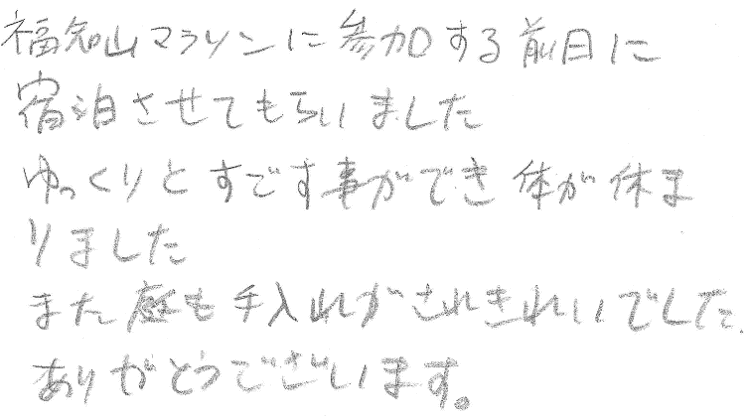 福知山マラソンに参加する前日に
宿泊させてもらいました
ゆっくりとすごす事ができ体が休ま
りました
また庭も手入れがされきれいでした.
ありがとうございます。